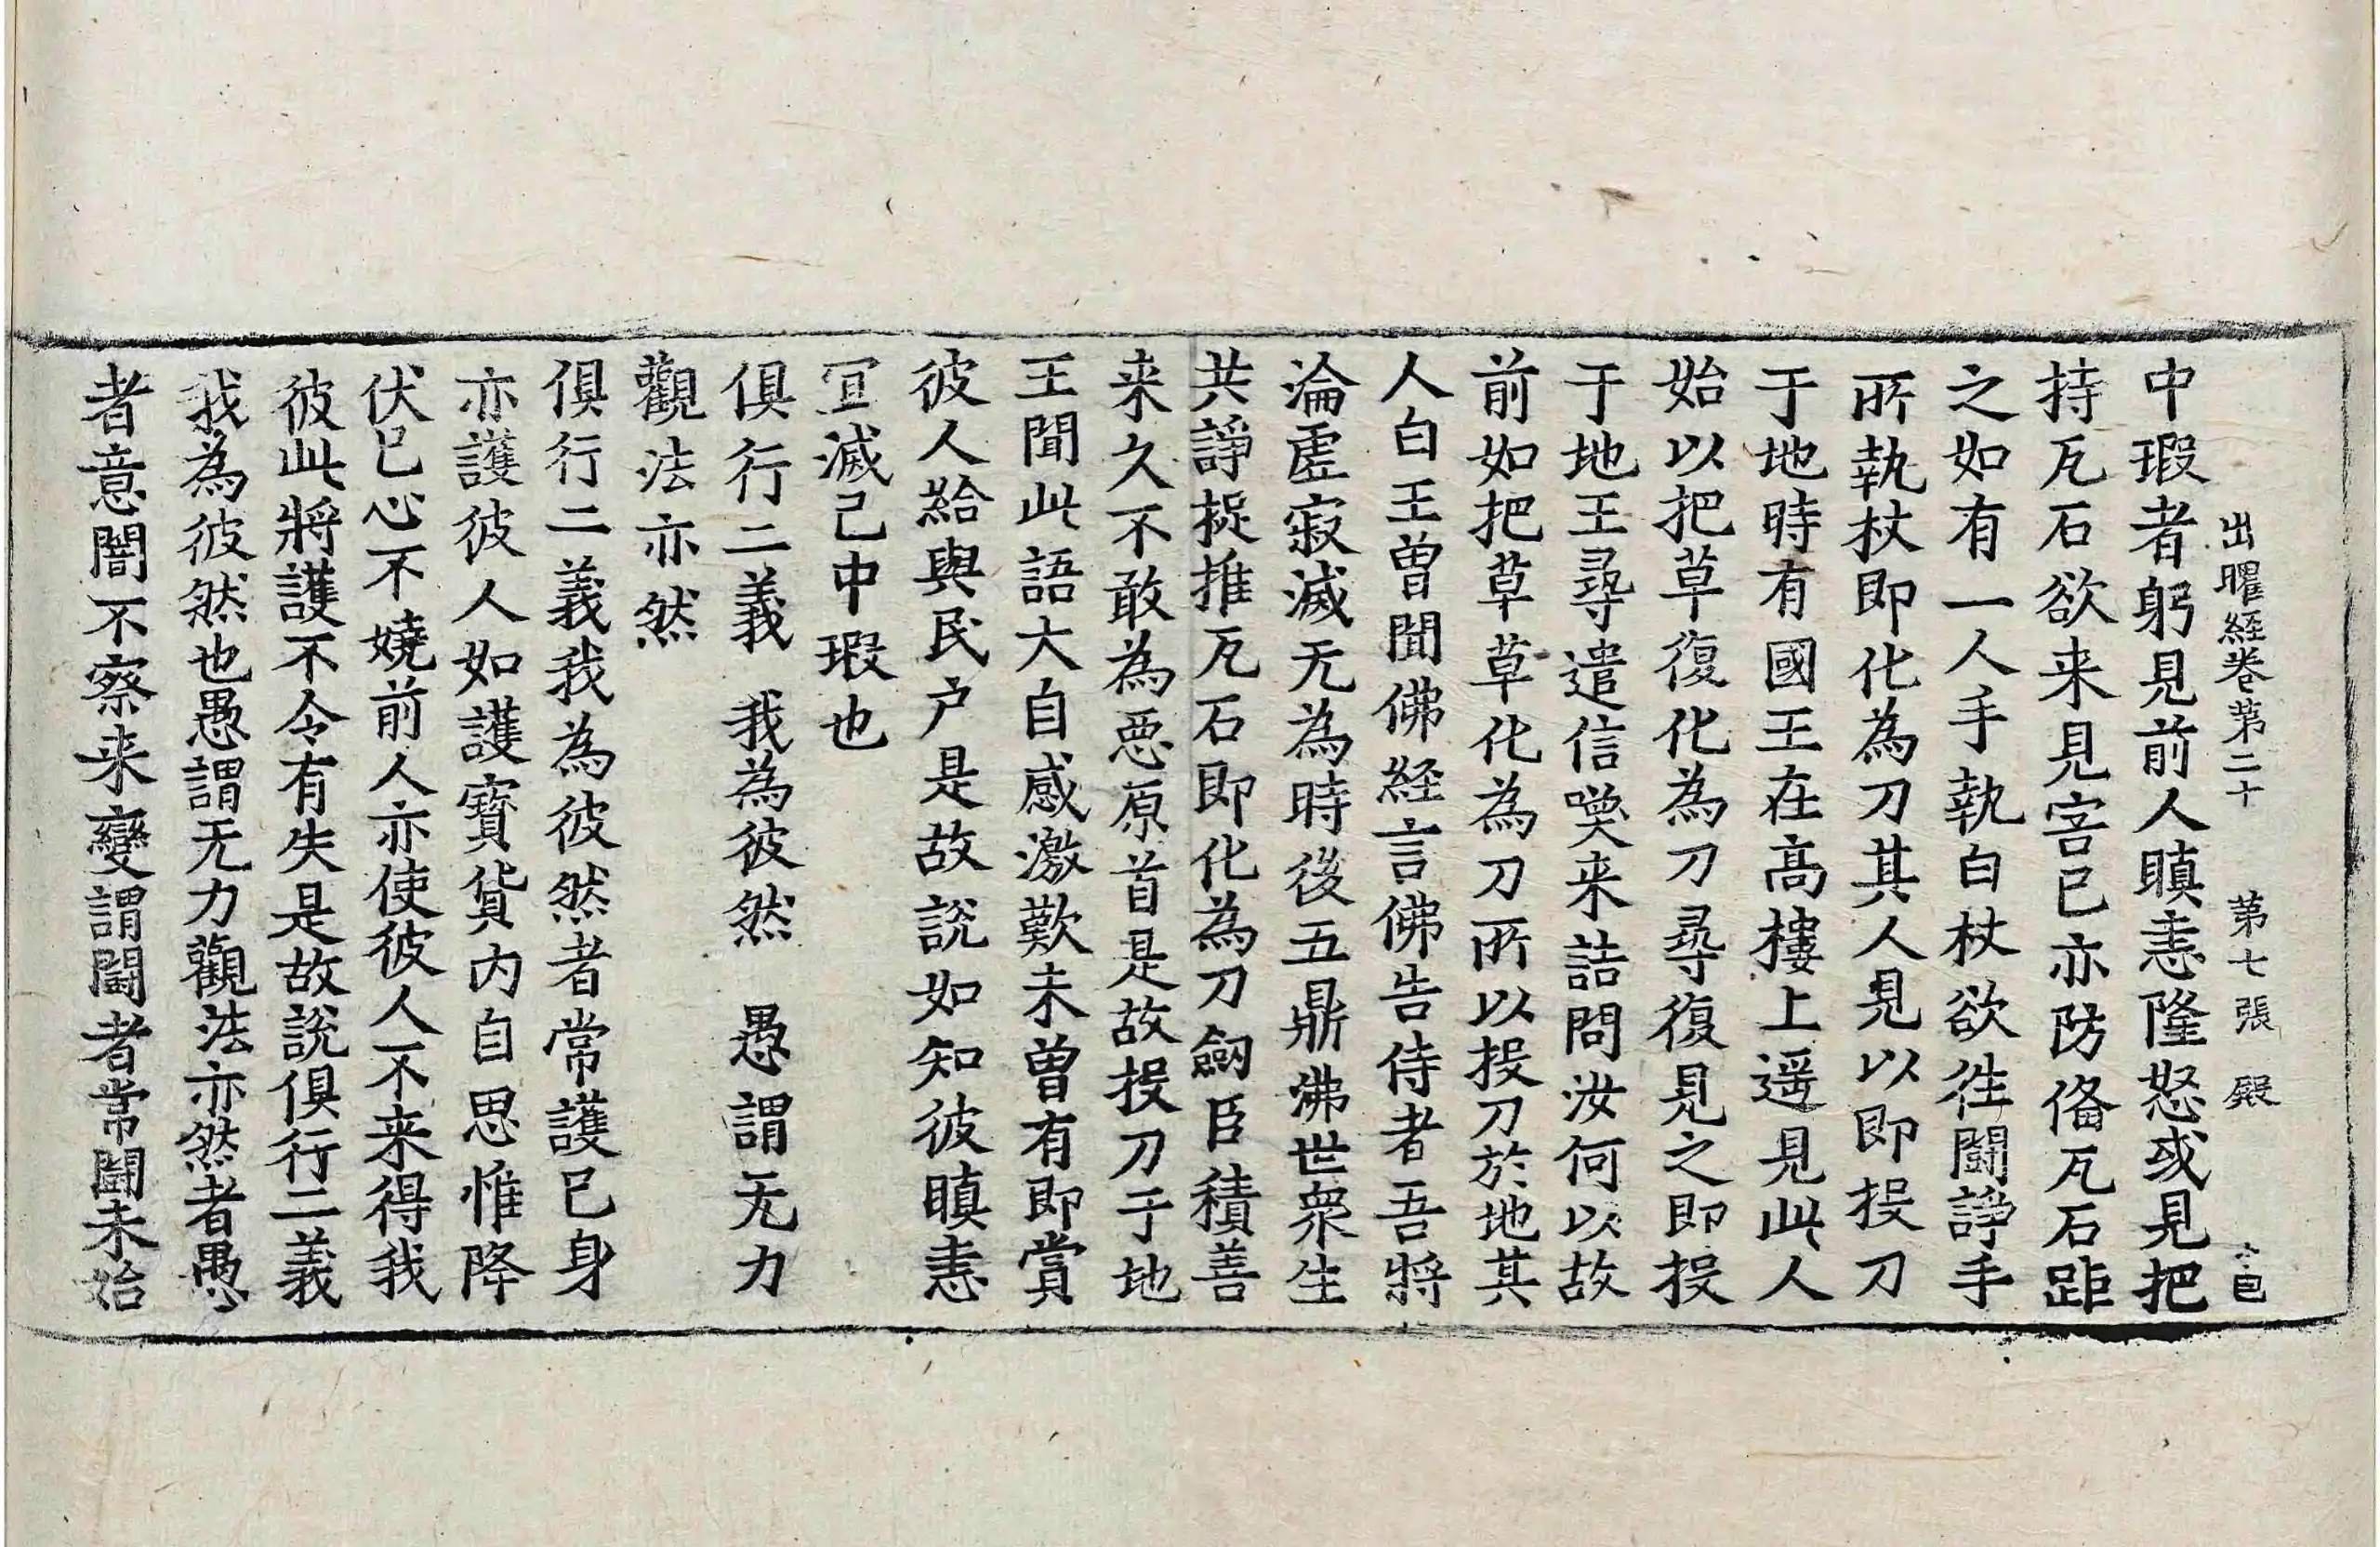 出曜経卷苐二十 苐七張 殿
中瑕者躬見前人瞋恚隆怒或見把
持瓦石欲来見害已亦防俻瓦石距
之如有一人手執白杖欲往鬪諍手
所執杖即化為刀其人見以即投刀
于地時有國王在高樓上遥見此人
始以把草復化為刀尋復見之即投
于地王尋遣信喚来詰問汝何以故
前如把草草化為刀所以投刀於地其
人白王曽聞佛経言佛告侍者吾將
淪虛寂滅无為時後五鼎沸世衆生
共諍捉推瓦石即化為刀劒臣積善
来久不敢為惡原首是故投刀于地
王聞此語大自感激歎未曽有即賞
彼人給與民户是故説如知彼瞋恚
冝滅己中瑕也
俱行二義 我為彼然 愚謂无力
觀法亦然
俱行二義我為彼然者常護己身
亦護彼人如護寳貨内自思惟降
伏己心不嬈前人亦使彼人不来得我
彼此將護不令有失是故説俱行二義
我為彼然也愚謂无力觀法亦然者愚
者意闇不察来變謂鬪者常鬪未始